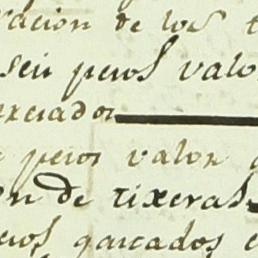 racion de los t
seis pesos valo
erciados
pesos valor
on de tixeras
esos gastados e